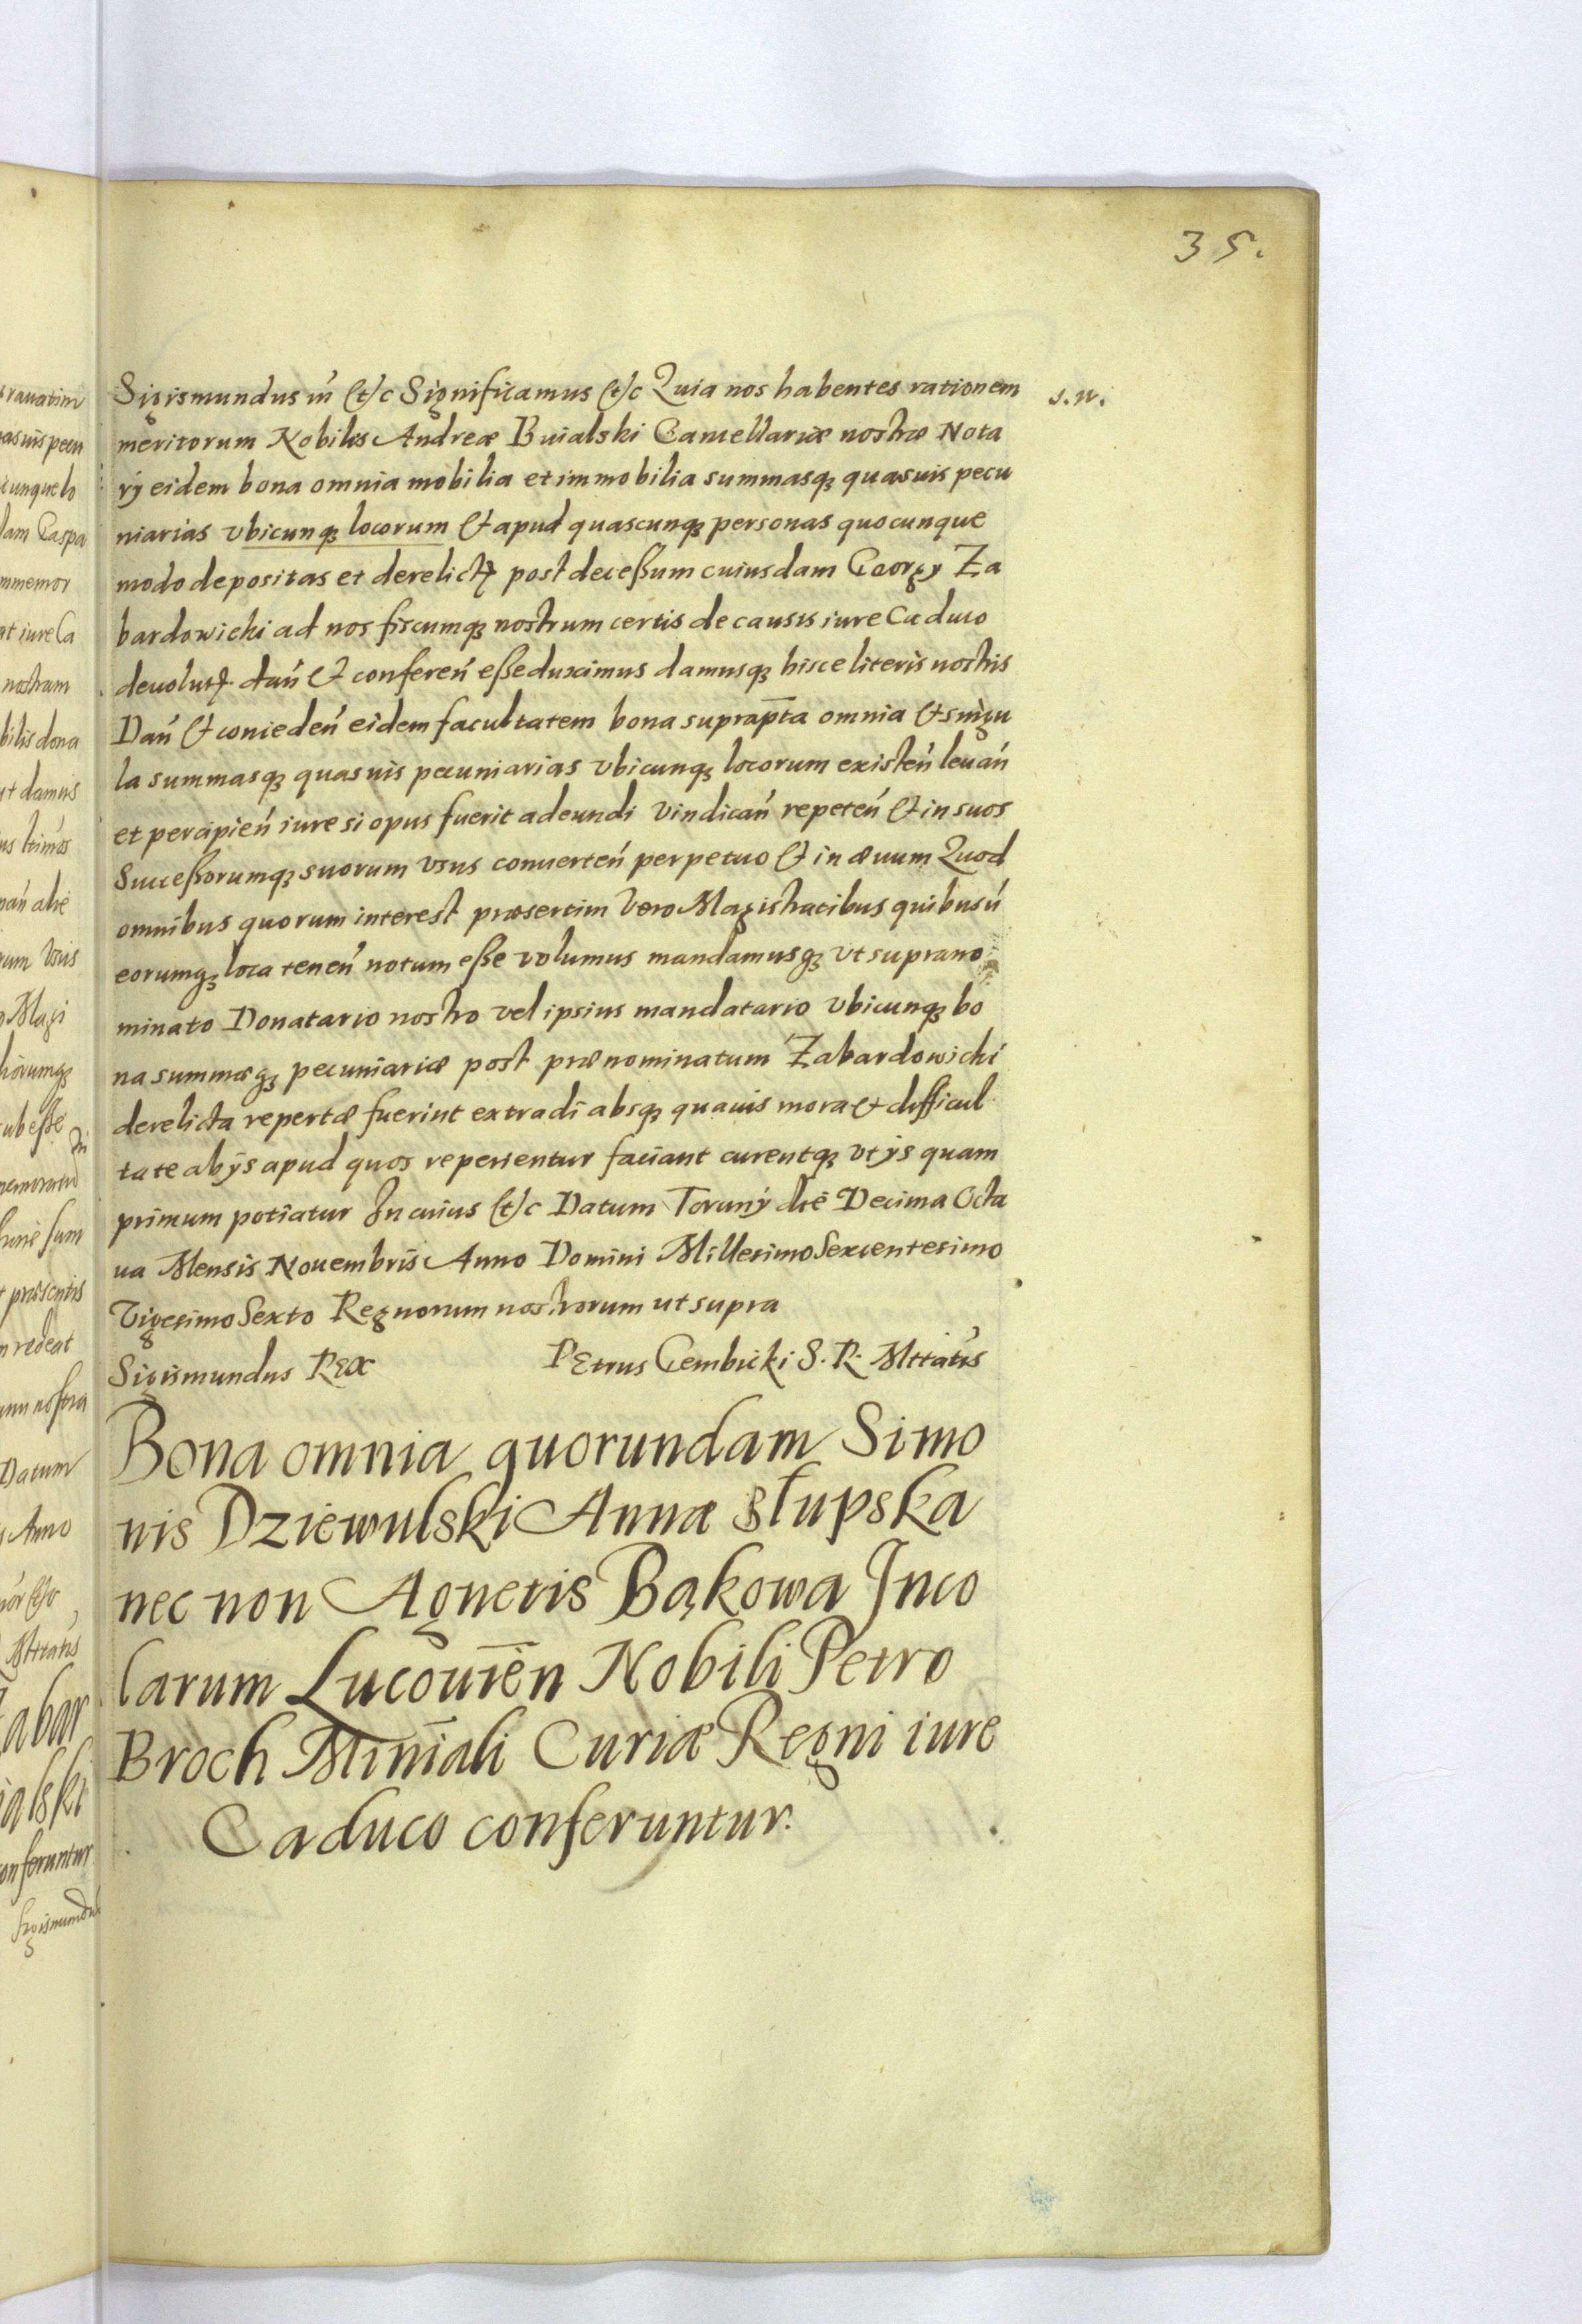 35.
Sigismundus iii &c Significamus &c Quia nos habentes rationem
s. n.
meritorum Nobilis Andreæ Buialski Cancellariæ nostræ Nota
rÿ eidem bona omnia mobilia et immobilia summasqꝫ quasuis pecu
niarias vbicunqꝫ locorum & apud quascunqꝫ personas quocunque
modo depositas et derelictꝭ post decessum cuiusdam Georgy Za
bardowichi ad nos fiscumqꝫ nostrum certis de causis iure Caduco
deuolutꝭ. dań & confereń esse duximus damusqꝫ hisce literis nostris
Dań & concedeń eidem facultatem bona suprap̄ta omnia & singu
la summasqꝫ quasuis pecuniarias vbicunqꝫ locorum existeń leuań
et percipień iure si opus fuerit adeundi vindicań repeteń & in suos
Successorumqꝫ suorum vsus conuerteń perpetuo & in æuum Quod
omnibus quorum interest præsertim vero Magistratibus quibusú
eorumqꝫ loca teneń notum esse volumus mandamusqꝫ vt suprano
minato Donatario nostro vel ipsius mandatario vbicunqꝫ bo
na summæqꝫ pecuniariæ post prænominatum Zabardowichi
derelicta repertæ fuerint extradi absqꝫ quauis mora & difficul
tate ab ÿs apud quos reperientur faciant curentqꝫ vt ÿs quam
primum potiatur In cuius &c Datum Toruny die Decima Octa
ua Mensis Nouembris Anno Domini Millesimo Sexcentesimo
Vigesimo Sexto Regnorum nostrorum ut supra
Sigismundus Rex Petrus Gembicki S. R. Mttatis
Bona omnia quorundam Simo
nis Dziewulski Annæ Słupska
nec non Agnetis Bąkowa Inco
larum Lucouień Nobili Petro
Broch Minīali Curiæ Regni iure
Caduco conferuntur.